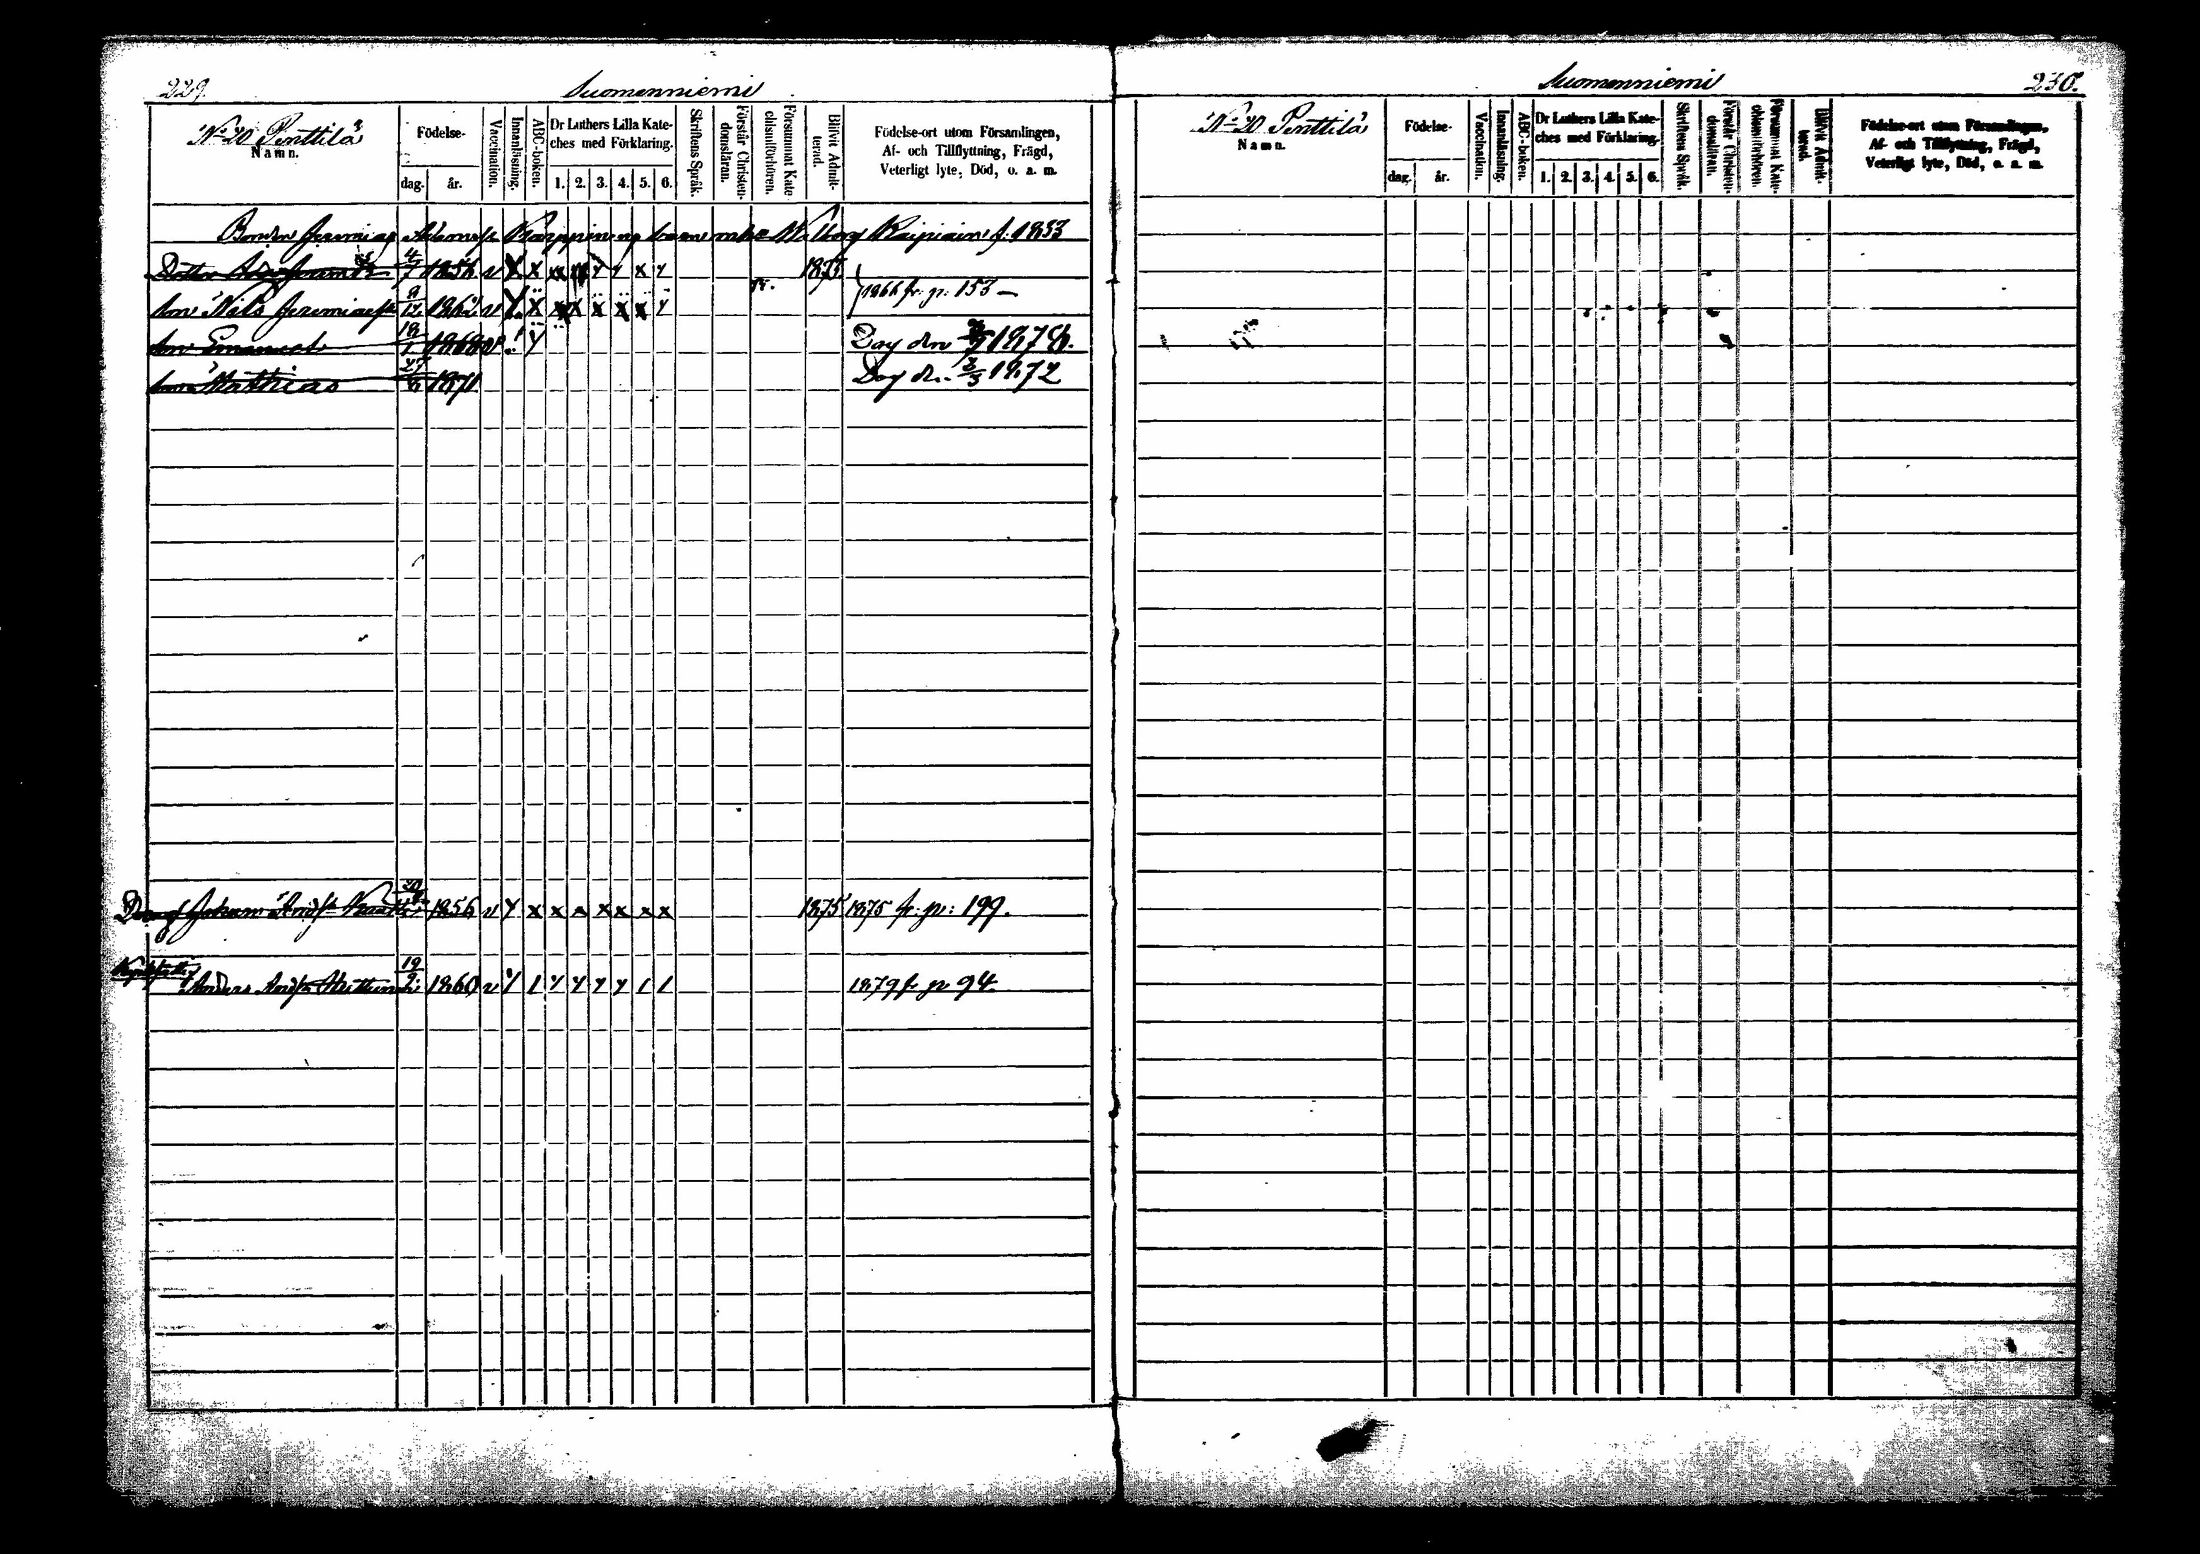 229.
Suomenniemi
N:o 20 Penttilä
Namn.
Födelse-
dag.
år.
Vaccination.
Innanläsning.
ABC-boken.
Dr Luthers Lilla Kate-
ches med Förklaring.
1. 2. 3. 4. 5. 6.
Skriftens Språk.
Förstår Christen-
domsläran.
Försummat Kate-
chismiförhören.
Blifvit Admit-
terad.
Födelse-ort utom Församlingen,
Af- och Tillflyttning, Frägd,
Veterligt lyte, Död, o. a. m.
Bonden Jeremias Adamss: Karppinens barn Walborg f. 1833
Dotter 4/7 1856 v x x 1873
Son Nils Jeremiaess: 1862 v x x x x x x 1866 fr. p. 153
Son Emanuel 18/1 1868 v Dog den 1874.
Son Mathias 1871 Dog d. 2/3 1872
Dreng Johan Andss: 1856 v x x x x x x x 1875 1875 fr. p: 199.
Anders Andss: 19/2 1860 v 1879 fr p 94.
Suomenniemi
230.
N:o 20 Penttilä
Namn.
Födelse-
dag.
år.
Vaccination.
Innanläsning.
ABC-boken.
Dr Luthers Lilla Kate-
ches med Förklaring.
1. 2. 3. 4. 5. 6.
Skriftens Språk.
Förstår Christen-
domsläran.
Försummat Kate-
chismiförhören.
Blifvit Admit-
terad.
Födelse-ort utom Församlingen,
Af- och Tillflyttning, Frägd,
Veterligt lyte, Död, o. a. m.